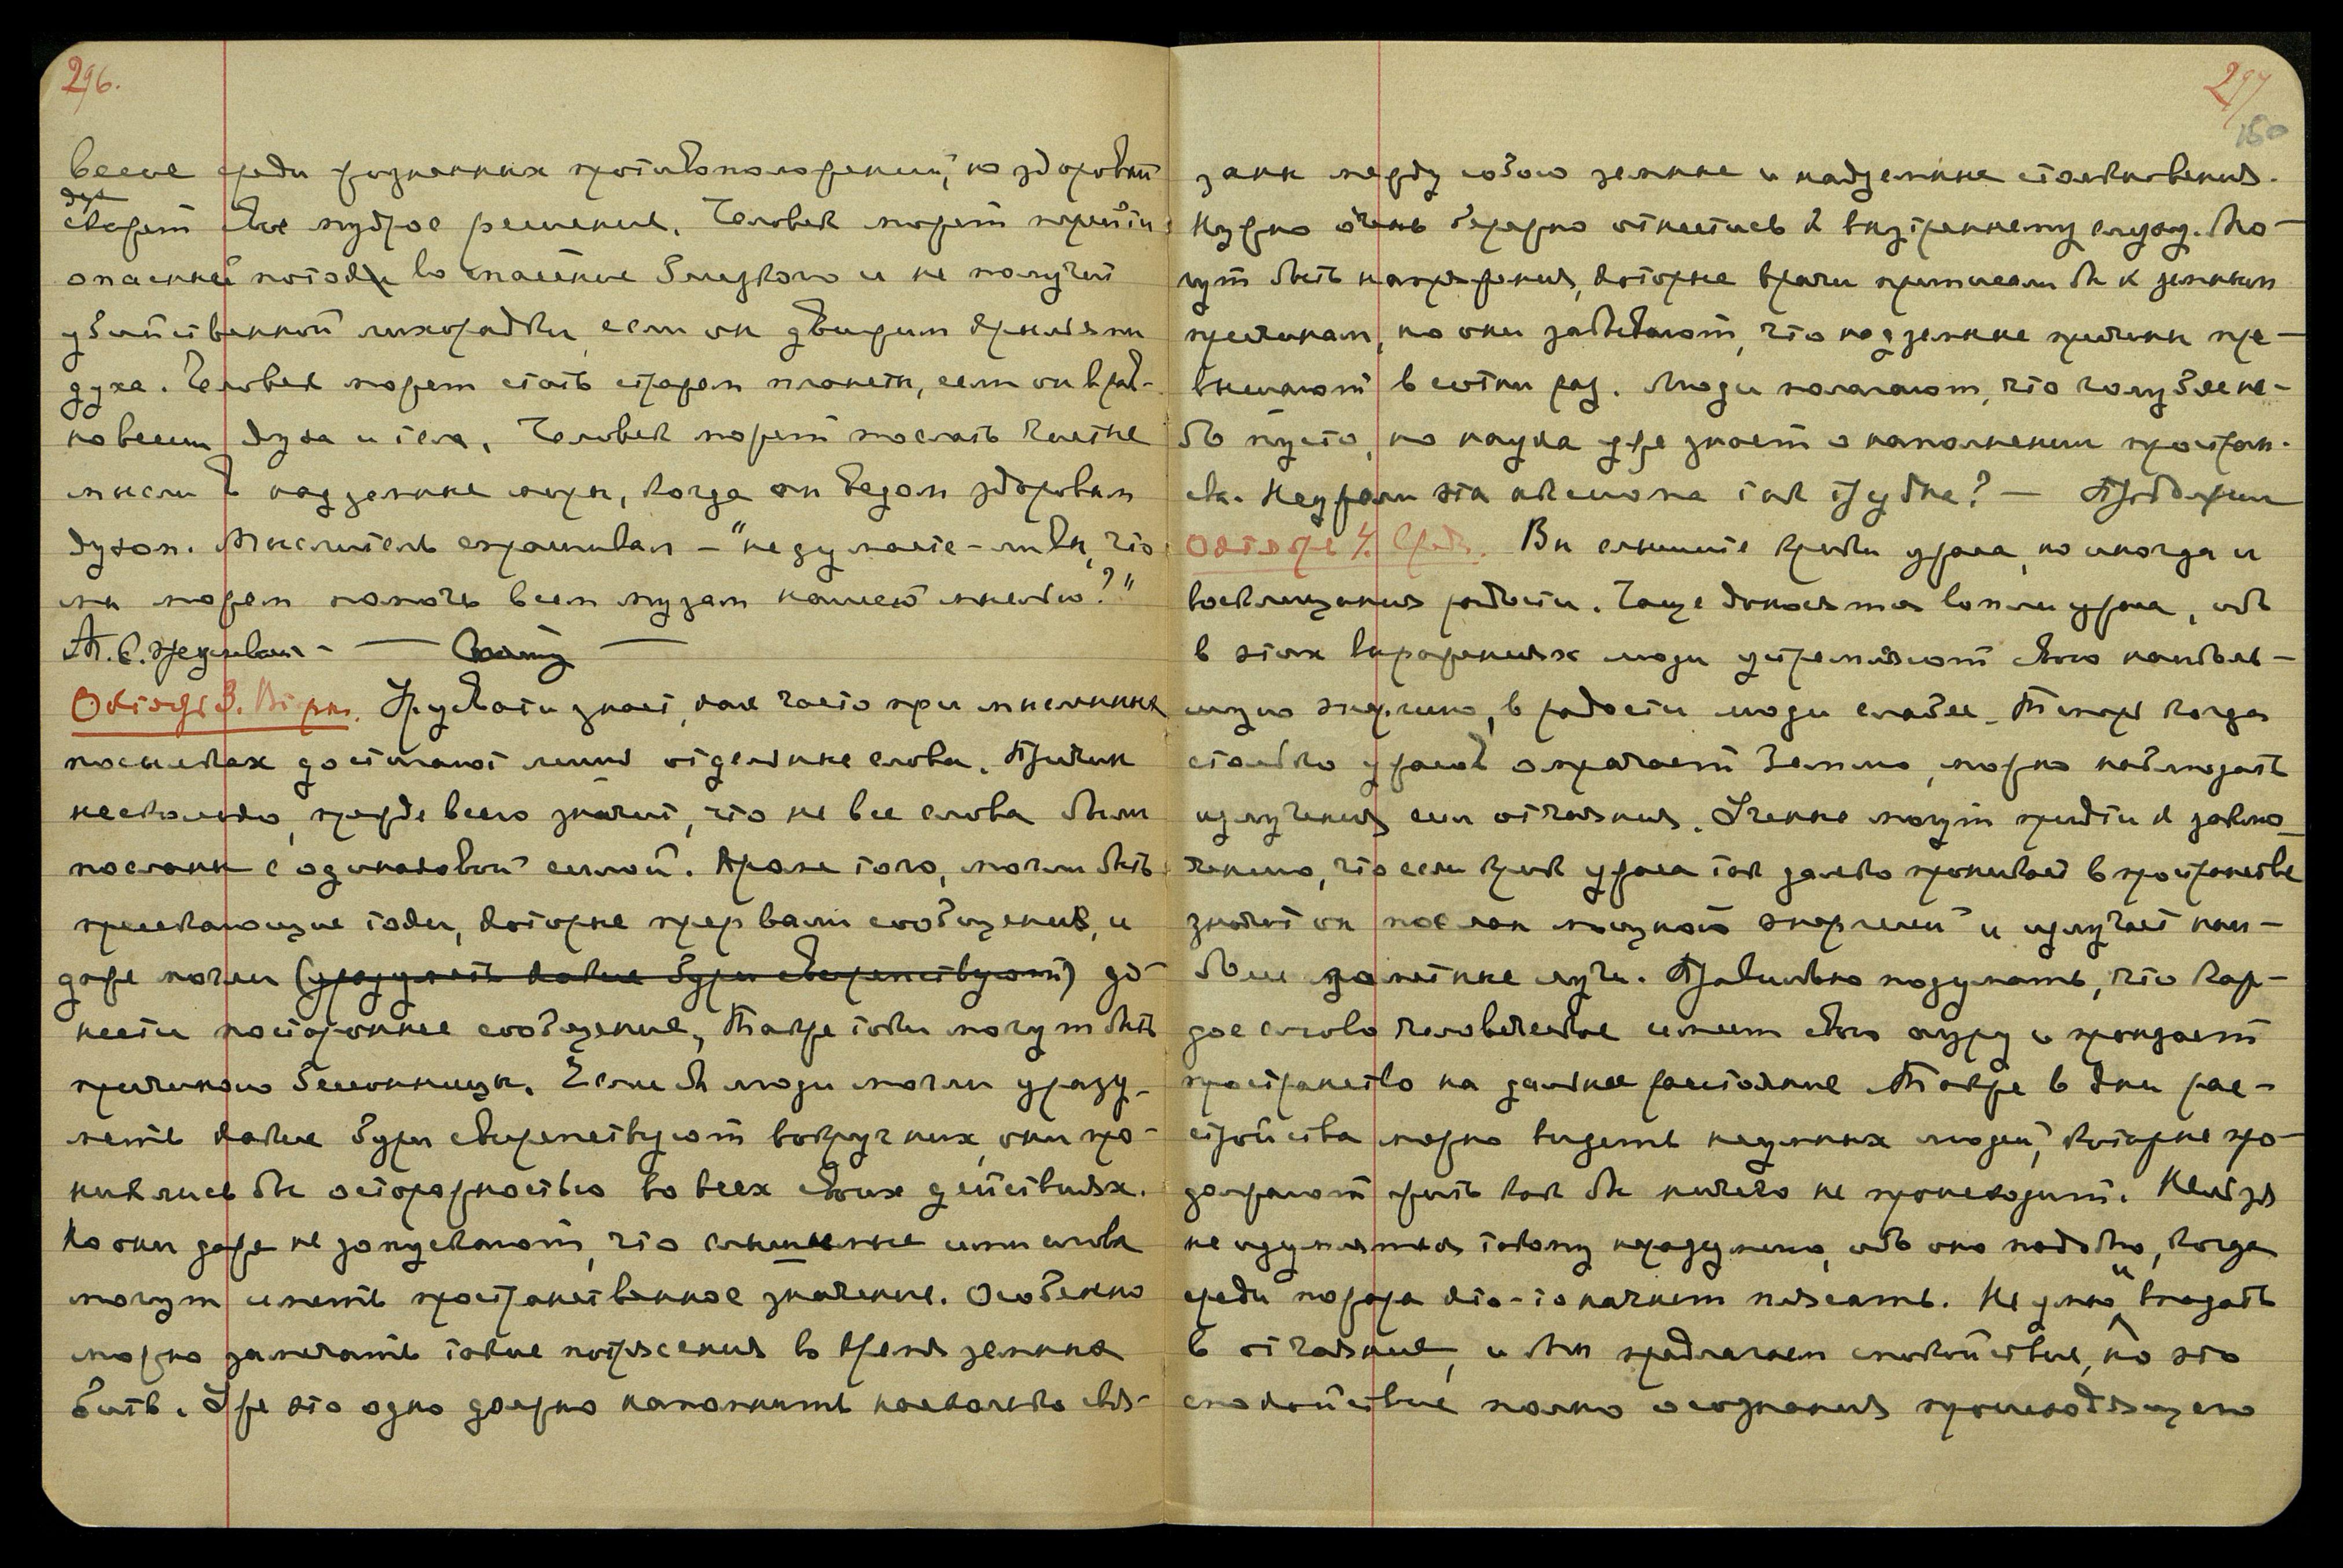 296.
весие среди жизненных противоположений, но здоровый
дух
скажет свое мудрое решение. Человек может перейти
опасный поток во спасение ближнего и не получит
убийственной лихорадки, если он движим крыльями
духа. Человек может стать стражем планеты, если он в рав-
новесии духа и тела. Человек может послать ценные
мысли в надземные миры, когда он ведом здоровым
духом. Мыслитель спрашивал – "не думаете-ли вы, что
мы можем помочь всем музам нашею мыслью?"
Октябрь 3. Вторн. Урусвати знает, как часто при мысленных
посылках достигают лишь отдельные слова. Причин
несколько, прежде всего значит, что не все слова были
посланы с одинаковой силой. Кроме того, могли быть
пресекающие токи, которые прервали сообщения, и
даже могли (уразуметь какие бури свирепствуют) до-
нести постороннее сообщение. Также токи могут быть
причиною бессонницы. Если бы люди могли уразу-
меть какие бури свирепствуют вокруг них, они про-
никлись бы осторожностью во всех своих действиях.
Но они даже не допускают, что слышимые ими слова
могут иметь пространственное значение. Особенно
можно замечать такие потрясения во время земных
битв. Уже это одно должно напомнить насколько свя-
297
150
заны между собою земные и надземные столкновения.
Нужно очень бережно отнестись к внутреннему слуху. Мо-
гут быть напряжения, которые врачи приписали бы к земным
причинам, но они забывают, что надземные причины пре-
вышают в сотни раз. Люди полагают, что голубое не-
бо пусто, но наука уже знает о наполнении простран-
ства. Неужели эта аксиома так трудна? –
Октябрь 4. Среда. Вы слышите крики ужаса, но иногда и
восклицания радости. Чаще доносятся вопли ужаса, ибо
в этих выражениях люди устремляют свою наиболь-
шую энергию, в радости люди слабее. Теперь когда
столько ужасов омрачает Землю, можно наблюдать
излучения сил отчаяния. Ученые могут придти к заклю-
чению, что если крик ужаса так далеко проникает в пространстве
значит он послан мощной энергией и излучает наи-
более заметные лучи. Правильно подумать, что каж-
дое слово человеческое имеет свою ауру и пронзает
пространство на дальнее расстояние. Также в дни рас-
стройства можно видеть неумных людей, которые про-
должают жить как бы ничего не происходит. Нельзя
не изумляться такому неразумию, ибо оно подобно, когда
среди пожара кто-то начнет плясать. Неумно и впадать
в отчаяние, и Мы предлагаем спокойствие, но это
спокойствие полно осознания происходящего